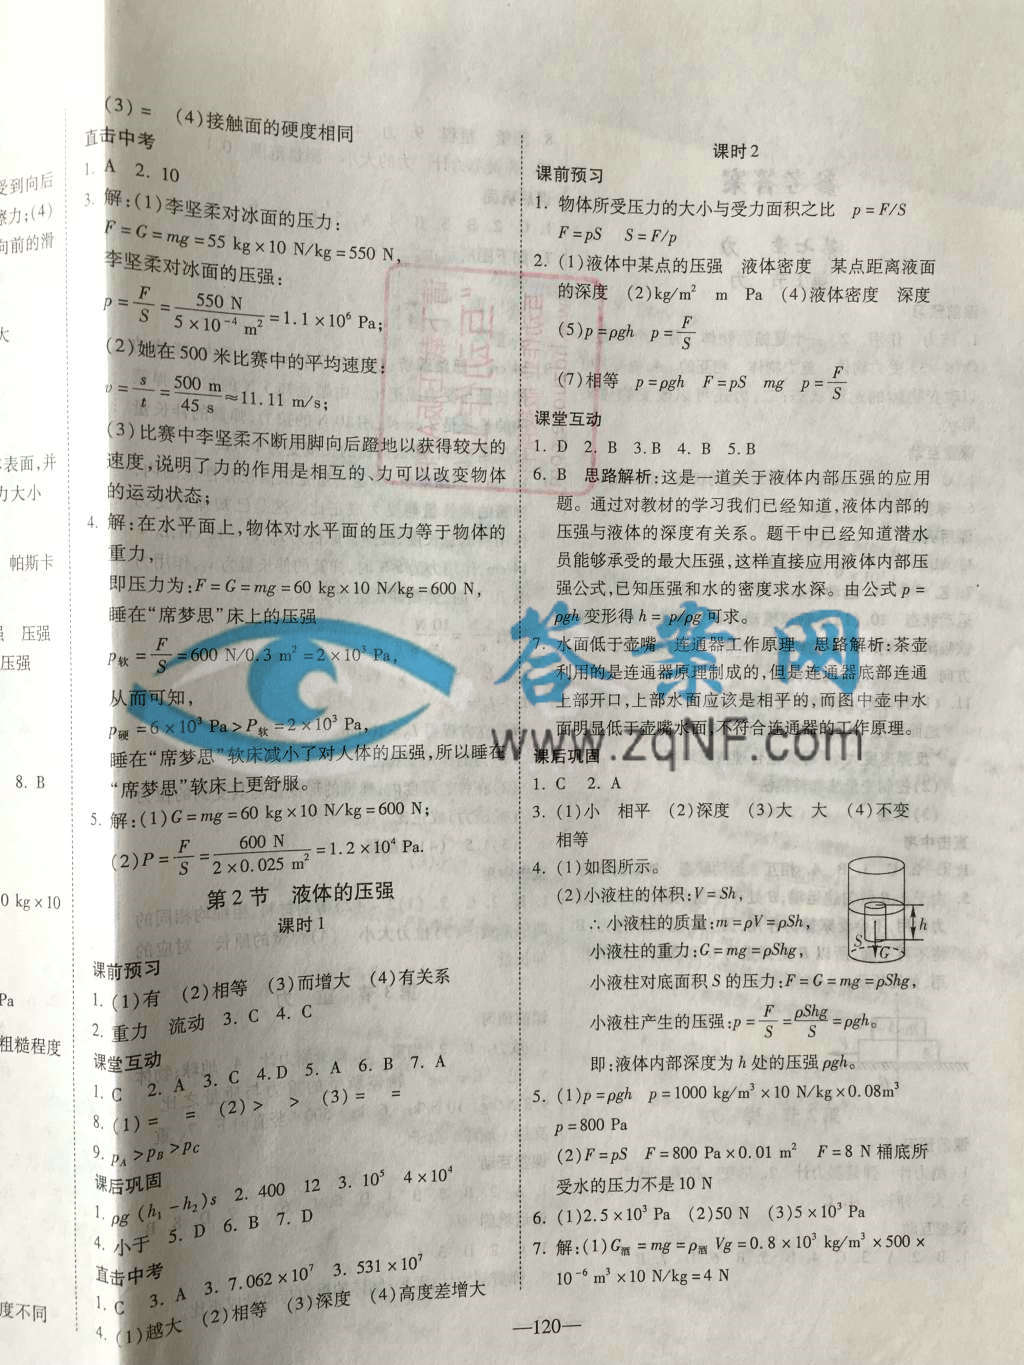 受到向后
擦力;(4)
向前的滑
大
表面,并
力大小
帕斯卡
强 压强
压强
8. B
0 kg×10
Pa
粗糙程度
度不同
(3)= (4)接触面的硬度相同
直击中考
1. A 2. 10
3. 解:(1)李坚柔对冰面的压力:
F=G=mg=55 kg×10 N/kg=550 N,
李坚柔对冰面的压强:
p=F/S=550 N/5×10⁻⁴ m²=1.1×10⁶ Pa;
(2)她在500米比赛中的平均速度:
v=s/t=500 m/45 s≈11.11 m/s;
(3)比赛中李坚柔不断用脚向后蹬地以获得较大的
速度,说明了力的作用是相互的、力可以改变物体
的运动状态;
4. 解:在水平面上,物体对水平面的压力等于物体的
重力,
即压力为:F=G=mg=60 kg×10 N/kg=600 N,
睡在“席梦思”床上的压强
p软=F/S=600 N/0.3 m²=2×10³ Pa,
从而可知,
p硬=6×10³ Pa>P软=2×10³ Pa,
睡在“席梦思”软床减小了对人体的压强,所以睡在
“席梦思”软床上更舒服。
5. 解:(1)G=mg=60 kg×10 N/kg=600 N;
(2)P=F/S=600 N/2×0.025 m²=1.2×10⁴ Pa.
第2节 液体的压强
课时1
课前预习
1. (1)有 (2)相等 (3)而增大 (4)有关系
2. 重力 流动 3. C 4. C
课堂互动
1. C 2. A 3. C 4. D 5. A 6. B 7. A
8. (1)= = (2)> > (3)= =
9. pA>pB>pC
课后巩固
1. ρg(h₁-h₂)s 2. 400 12 3. 10⁵ 4×10⁴
4. 小于 5. D 6. B 7. D
直击中考
1. C 3. A 3. 7.062×10⁷ 3. 531×10⁷
4. (1)越大 (2)相等 (3)深度 (4)高度差增大
课时2
课前预习
1. 物体所受压力的大小与受力面积之比 p=F/S
F=pS S=F/p
2. (1)液体中某点的压强 液体密度 某点距离液面
的深度 (2)kg/m² m Pa (4)液体密度 深度
(5)p=ρgh p=F/S
(7)相等 p=ρgh F=pS mg p=F/S
课堂互动
1. D 2. B 3. B 4. B 5. B
6. B 思路解析:这是一道关于液体内部压强的应用
题。通过对教材的学习我们已经知道,液体内部的
压强与液体的深度有关系。题干中已经知道潜水
员能够承受的最大压强,这样直接应用液体内部压
强公式,已知压强和水的密度求水深。由公式 p=
ρgh 变形得 h=p/ρg 可求。
7. 水面低于壶嘴 连通器工作原理 思路解析:茶壶
利用的是连通器原理制成的,但是连通器底部连通
上部开口,上部水面应该是相平的,而图中壶中水
面明显低于壶嘴水面,不符合连通器的工作原理。
课后巩固
1. C 2. A
3. (1)小 相平 (2)深度 (3)大 大 (4)不变
相等
4. (1)如图所示。
(2)小液柱的体积:V=Sh,
∴小液柱的质量:m=ρV=ρSh,
小液柱的重力:G=mg=ρShg,
小液柱对底面积 S 的压力:F=G=mg=ρShg,
小液柱产生的压强:p=F/S=ρShg/S=ρgh。
即:液体内部深度为 h 处的压强ρgh。
h
S
G
5. (1)p=ρgh p=1000 kg/m³×10 N/kg×0.08m³
p=800 Pa
(2)F=pS F=800 Pa×0.01 m² F=8 N 桶底所
受水的压力不是10 N
6. (1)2.5×10³ Pa (2)50 N (3)5×10³ Pa
7. 解:(1)G酒=mg=ρ酒 Vg=0.8×10³ kg/m³×500×
10⁻⁶ m³×10 N/kg=4 N
—120—
答案网
www.zqNF.com